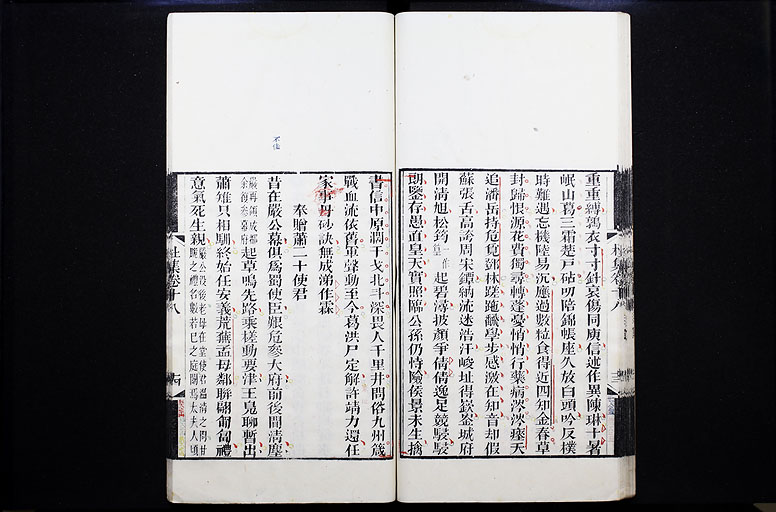 重重縛鶉衣寸寸針哀傷同庾信述作異陳琳十暑
岷山葛三霜楚戶砧叨陪錦帳座久放白頭吟反樸
時難遇忘機陸易沉應過數粒食得近四知金春草
封歸恨源花費獨尋轉蓬憂悄悄行藥病涔涔瘞夭
追潘岳持危覓鄧林蹉跎翻學步感激在知音却假
蘇張舌高誇周宋鐔納流迷浩汗峻址得嶔崟城府
開清旭松筠起碧潯披顏爭倩倩逸足競駸駸
朗鑒存愚直皇天實照臨公孫仍恃險侯景未生擒
書信中原濶干戈北斗深畏人千里井問俗九州箴
戰血流依舊軍聲動至今葛洪尸定解許靖力還任
家事丹砂訣無成涕作霖
奉贈蕭二十使君
昔在嚴公幕俱爲蜀使臣艱危參大府前後間清塵
嚴再領成都余復參幕府起草鳴先路乘槎動要津王鳧聊暫出
蕭雉只相馴終始任安義荒蕪孟母鄰聯翩匍匐禮
意氣死生親嚴公歿後老母在堂使君溫凊之問甘脆之禮名數若己之庭闈焉太夫人傾
杜集卷十八